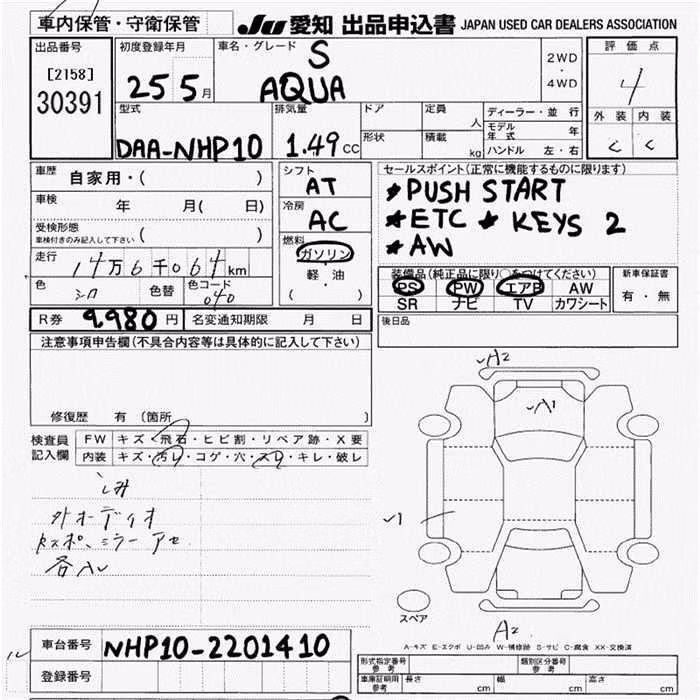 車内保管・守衛保管 JU 愛知 出品申込書 JAPAN USED CAR DEALERS ASSOCIATION
出品番号 初度登録年月 車名・グレード S 2WD・4WD 評価点
[2158] 25 5月 AQUA 4
30391 型式 排気量 ドア 定員 人 ディーラー・並行 外装 内装
モデル年式 年
DAA-NHP10 1.49cc 形状 積載 kg ハンドル 左・右 C C
車歴 自家用・( ) シフト AT セールスポイント(正常に機能するものに限ります)
車検 年 月( 日) 冷房 AC *PUSH START
受検形態 車検付きのみ記入して下さい ( ) *ETC *KEYS 2
燃料 ガソリン *AW
走行 14万6千064km 軽・油 装備品(純正品に限り○をつけてください) 新車保証書
( ) PS PW エアB AW 有・無
色 シロ 色替 色コード 040 SR ナビ TV カワシート
R券 9980円 名変通知期限 月 日 後日品
注意事項申告欄(不具合内容等は具体的に記入して下さい)
修復歴 有(箇所 )
検査員記入欄 FW キズ・飛石・ヒビ割・リペア跡・X要
内装 キズ・汚レ・コゲ・穴・スレ・キレ・破レ
A2
A1
シミ
外オーディオ
1
各ハレ
スペア
A2
A-キズ E-エクボ U-凹み W-補修跡 S-サビ C-腐食 XX-交換済
車台番号 NHP10-2201410
登録番号
形式指定番号 参考 類別区分番号 参考
車庫証明用 参考 長さ cm 幅 cm 高さ cm